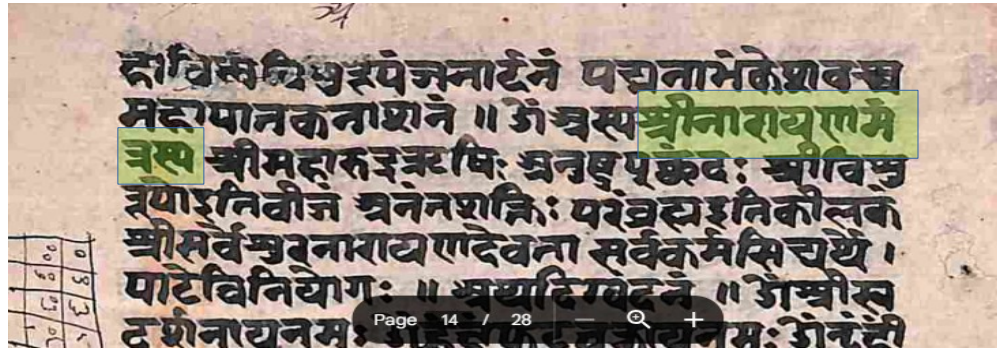 हाविष्णुविश्वरूपंजनार्दनं पद्मनाभंकेशवंच
महापातकनाशनं ॥ ॐ अस्यश्रीनारायणमं
त्रस्य श्रीमहारुद्रऋषिः अनुष्टुप्छंदः श्रीविश्व
रूपोइतिबीजं अनंतशक्तिः परंब्रह्मइतिकीलकं
श्रीसर्वेश्वरनारायणदेवता सर्वकर्मसिध्यर्थे ।
पाठेविनियोगः ॥ अथदिग्बंदनं ॥ ॐ श्रीसु
दर्शनायनमः
Page 14 / 28